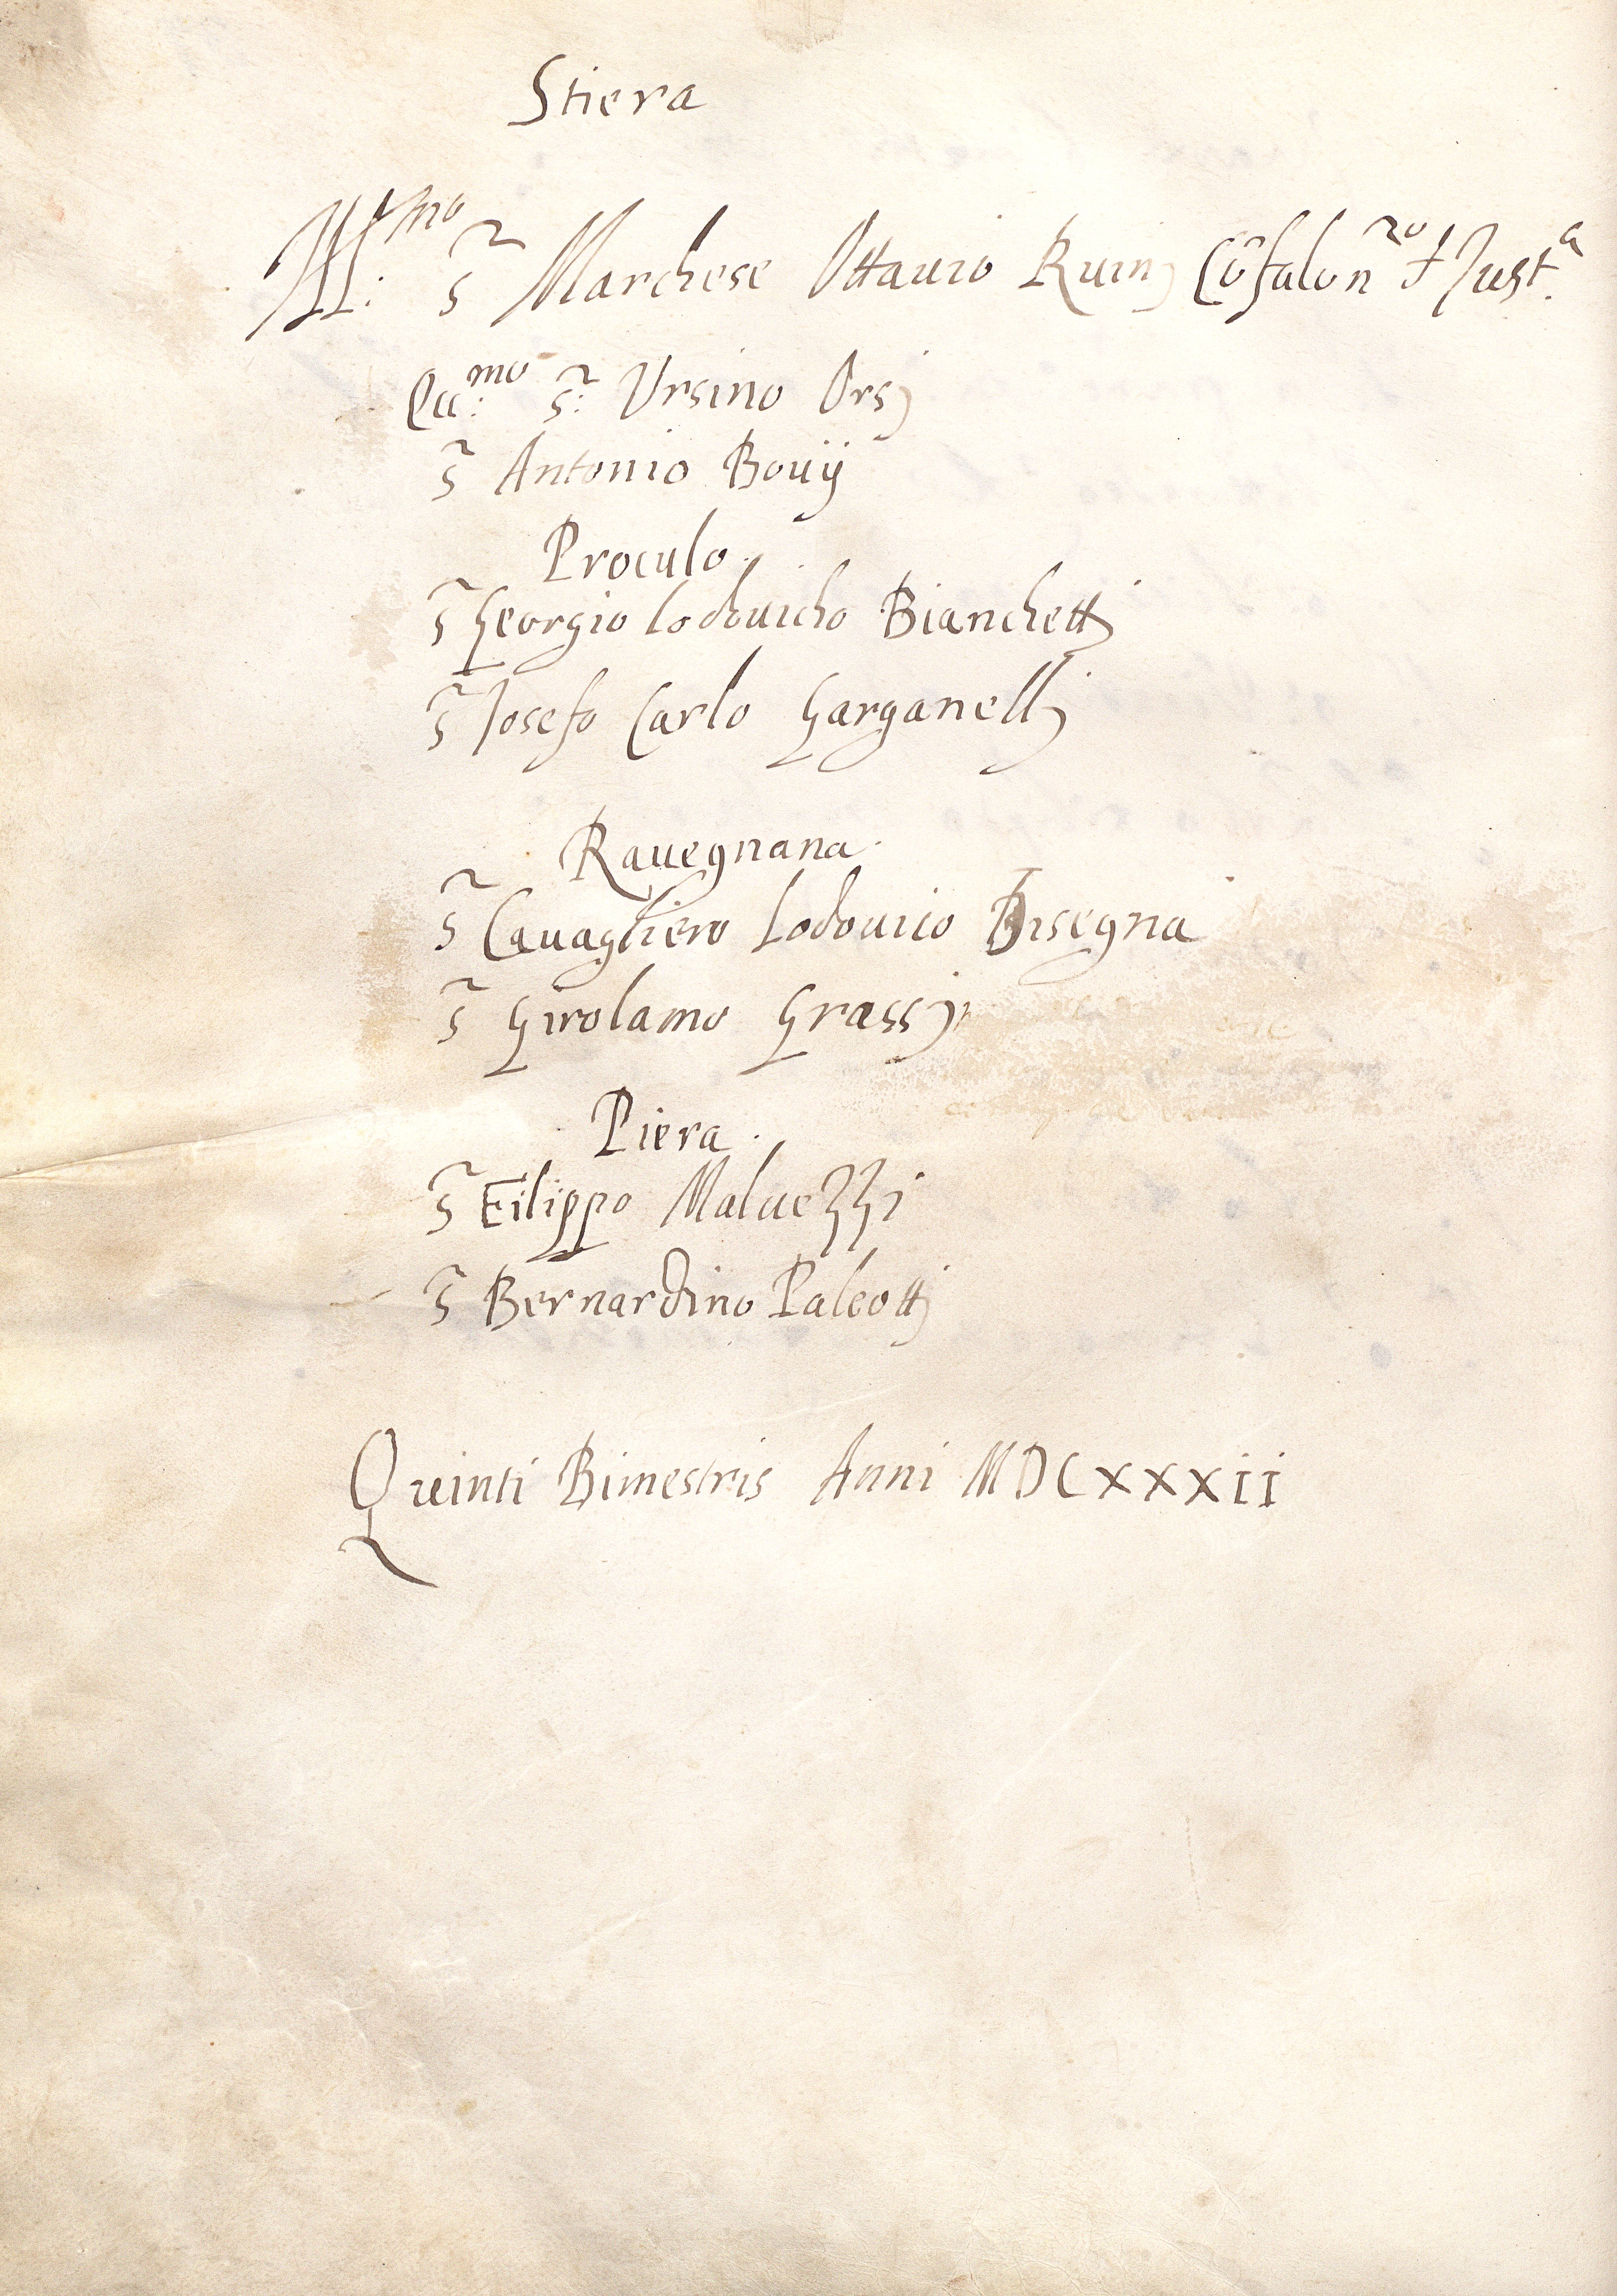 Stiera
Ill:mo Sr Marchese Ottauio Ruinj Cõfalonro d Justa.
Ecc:mo Sr: Ursino Orsj
Sr Antonio Bouij
Proculo.
Sr Georgio Lodouicho Bianchettj
Sr Iosefo Carlo Garganellj
Rauegnana.
Sr Cauagliero Lodouico Bisegna
Sr Girolamo Grassj
Piera.
Sr Filippo Maluezzi
Sr Bernardino Paleottj
Quinti Bimestris Anni MDCXXXII